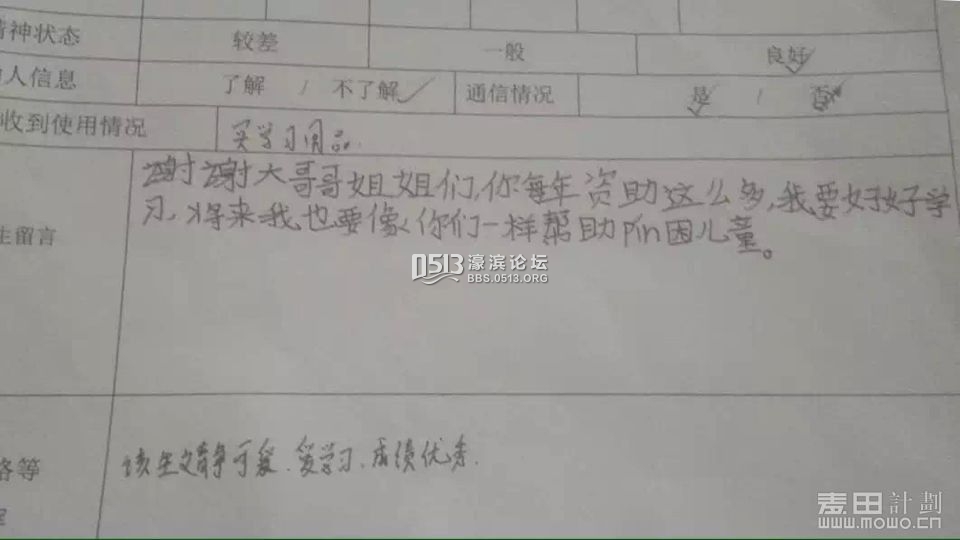 精神状态 较差 一般 良好
人信息 了解 / 不了解 ✓ 通信情况 是 / 否
收到使用情况 买学习用品
谢谢大哥哥姐姐们,你每年资助这么多,我要好好学
习,将来我也要像你们一样帮助Pin困儿童。
生留言
0513 濠滨论坛
BBS.0513.ORG
该生文静可爱.爱学习.成绩优秀.
格等
麦田計劃
www.mowo.cn